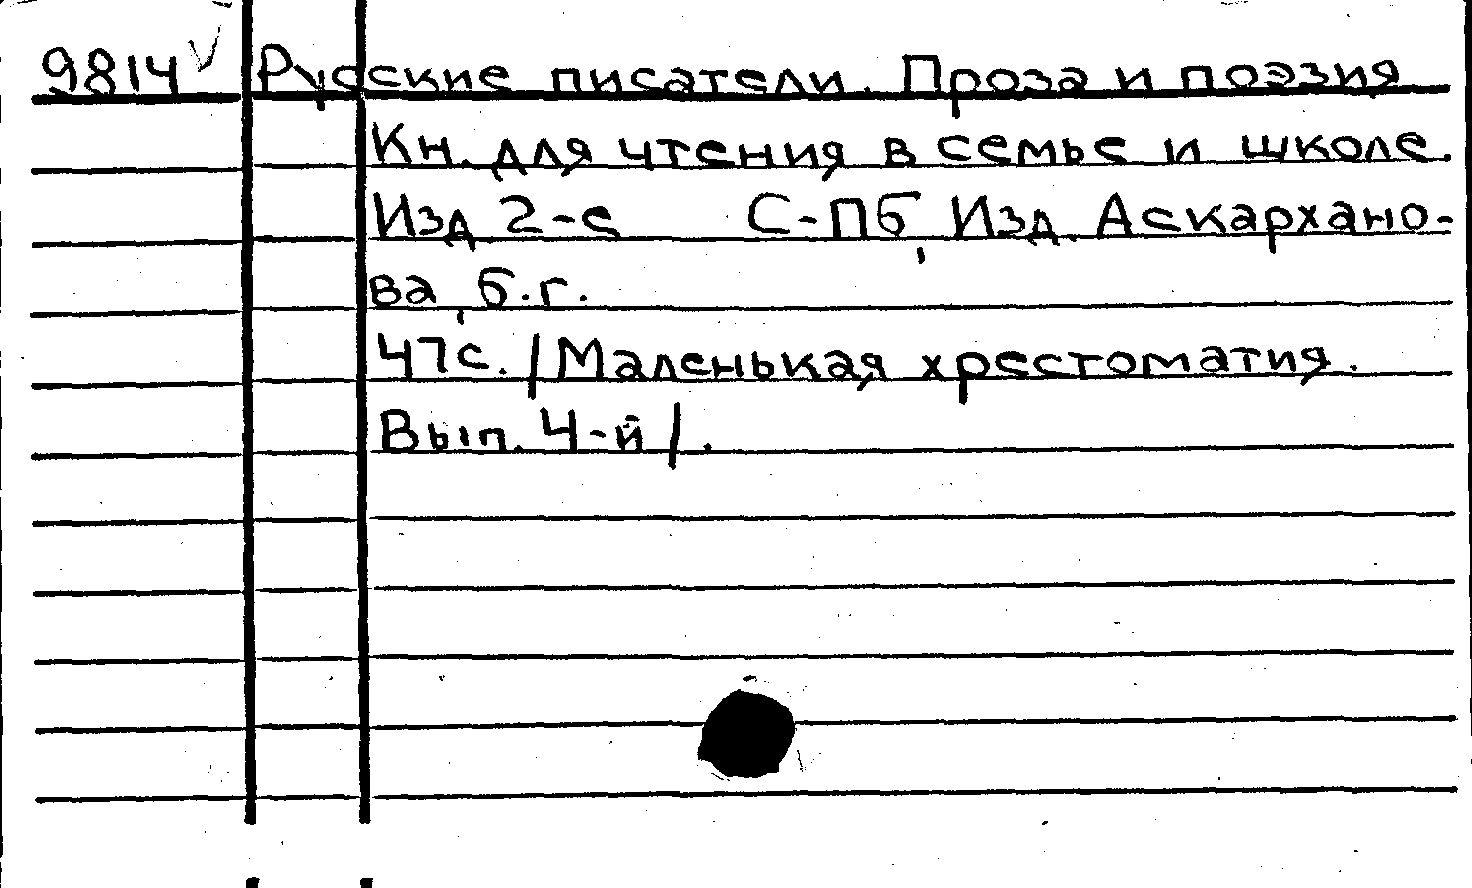 9814 Русские писатели. Проза и поэзия
Кн. для чтения в семье и школе.
Изд. 2-е С-Пб, Изд. Аскархано-
ва, б.г.
47с. /Маленькая хрестоматия.
Вып. 4-й/.